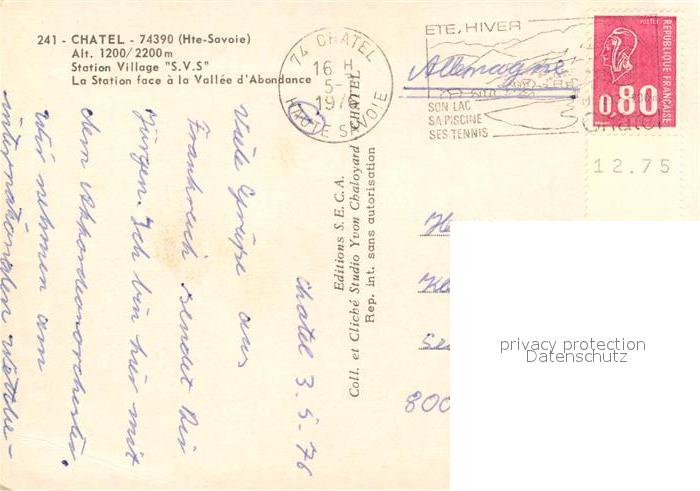 241 - CHATEL - 74390 (Hte-Savoie)
Alt. 1200/2200m
Station Village "S.V.S"
La Station face à la Vallée d'Abondance
74 CHATEL
16 H
5-5
1976
HAUTE SAVOIE
ETE, HIVER
SON LAC
SA PISCINE
SES TENNIS
Chatel
POSTES
REPUBLIQUE FRANÇAISE
0,80
12.75
Allemagne
Chatel 3.5.76
Viele Grüße aus
Frankreich sendet Dir
Jürgen. Ich bin hier mit
dem Akkordeonorchester.
Wir nehmen am
internationalen Wettbe-
Editions S.E.C.A.
Coll. et Cliché Studio Yvon Chaloyard CHATEL
Rep. int. sans autorisation
800
privacy protection
Datenschutz